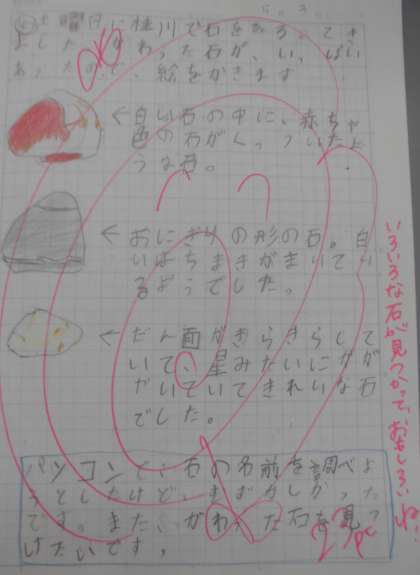 土曜日に桂川で石をひろってき
ました。かわった石が、いっぱい
あったので、絵をかきます
←白い石の中に、赤ちゃ
色の石がくっついたよ
うな石。
←おにぎりの形の石。白
いはちまきがまいてい
るようでした。
←だん面がきらきらして
いて、星みたいにかが
やいていてきれいな石
でした。
パソコンで、石の名前を調べよ
うとしたけど、むずかしかった
です。また、かわった石を見つ
けたいです。
いろいろな石が見つかって、おもしろいね!